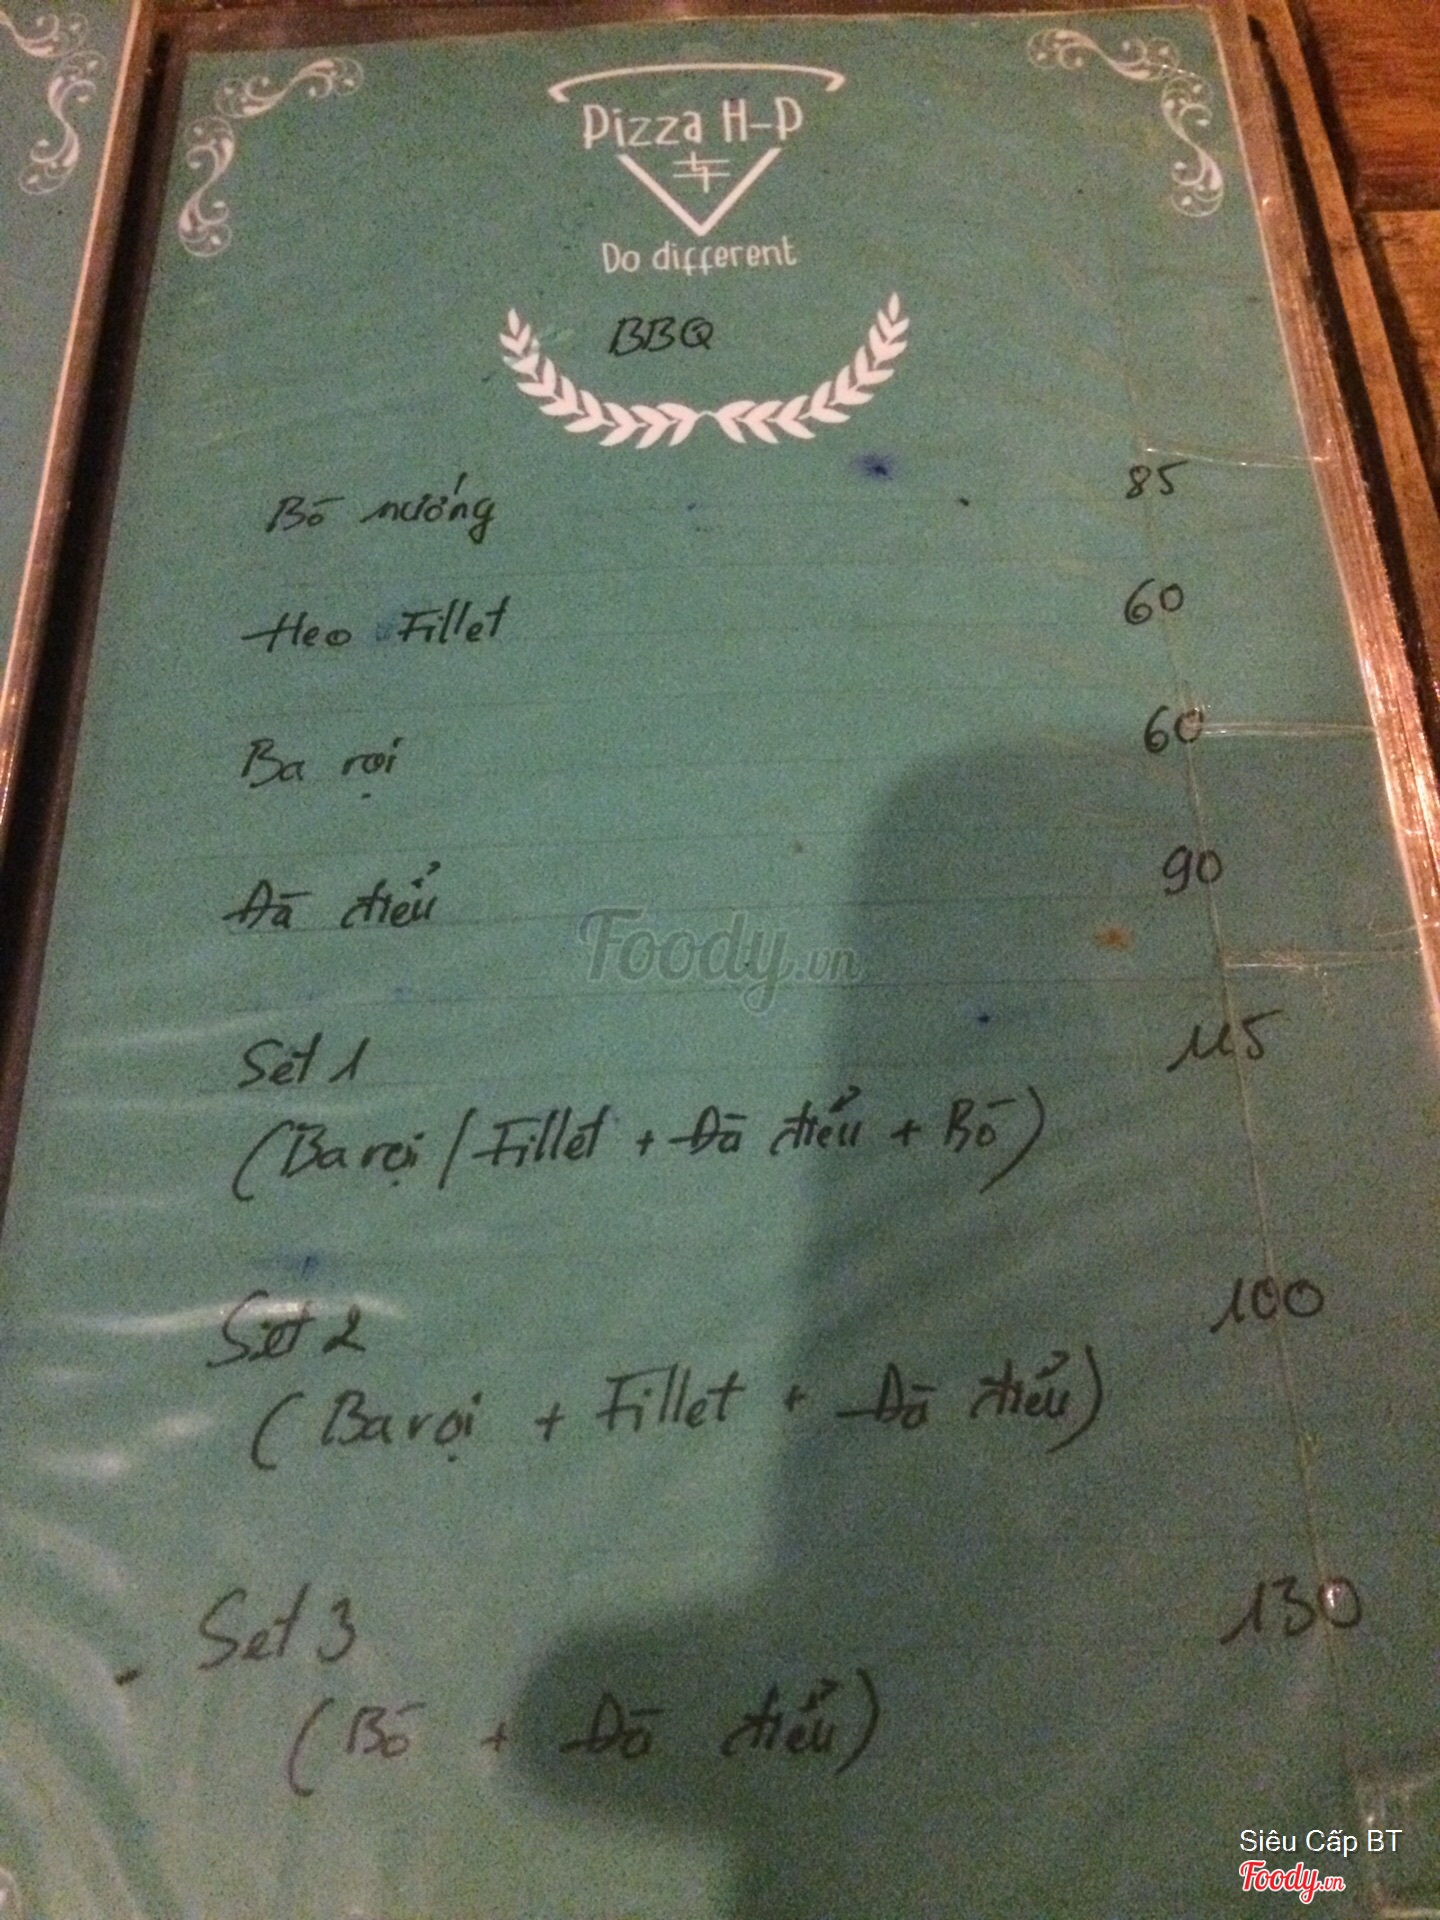 Pizza H-P
Do different
BBQ
Bò nướng 85
Heo Fillet 60
Ba rọi 60
Đà điểu 90
Foody.vn
Set 1 115
(Ba rọi / Fillet + Đà điểu + Bò)
Set 2 100
(Ba rọi + Fillet + Đà điểu)
Set 3 130
(Bò + Đà điểu)
Siêu Cấp BT
Foody.vn